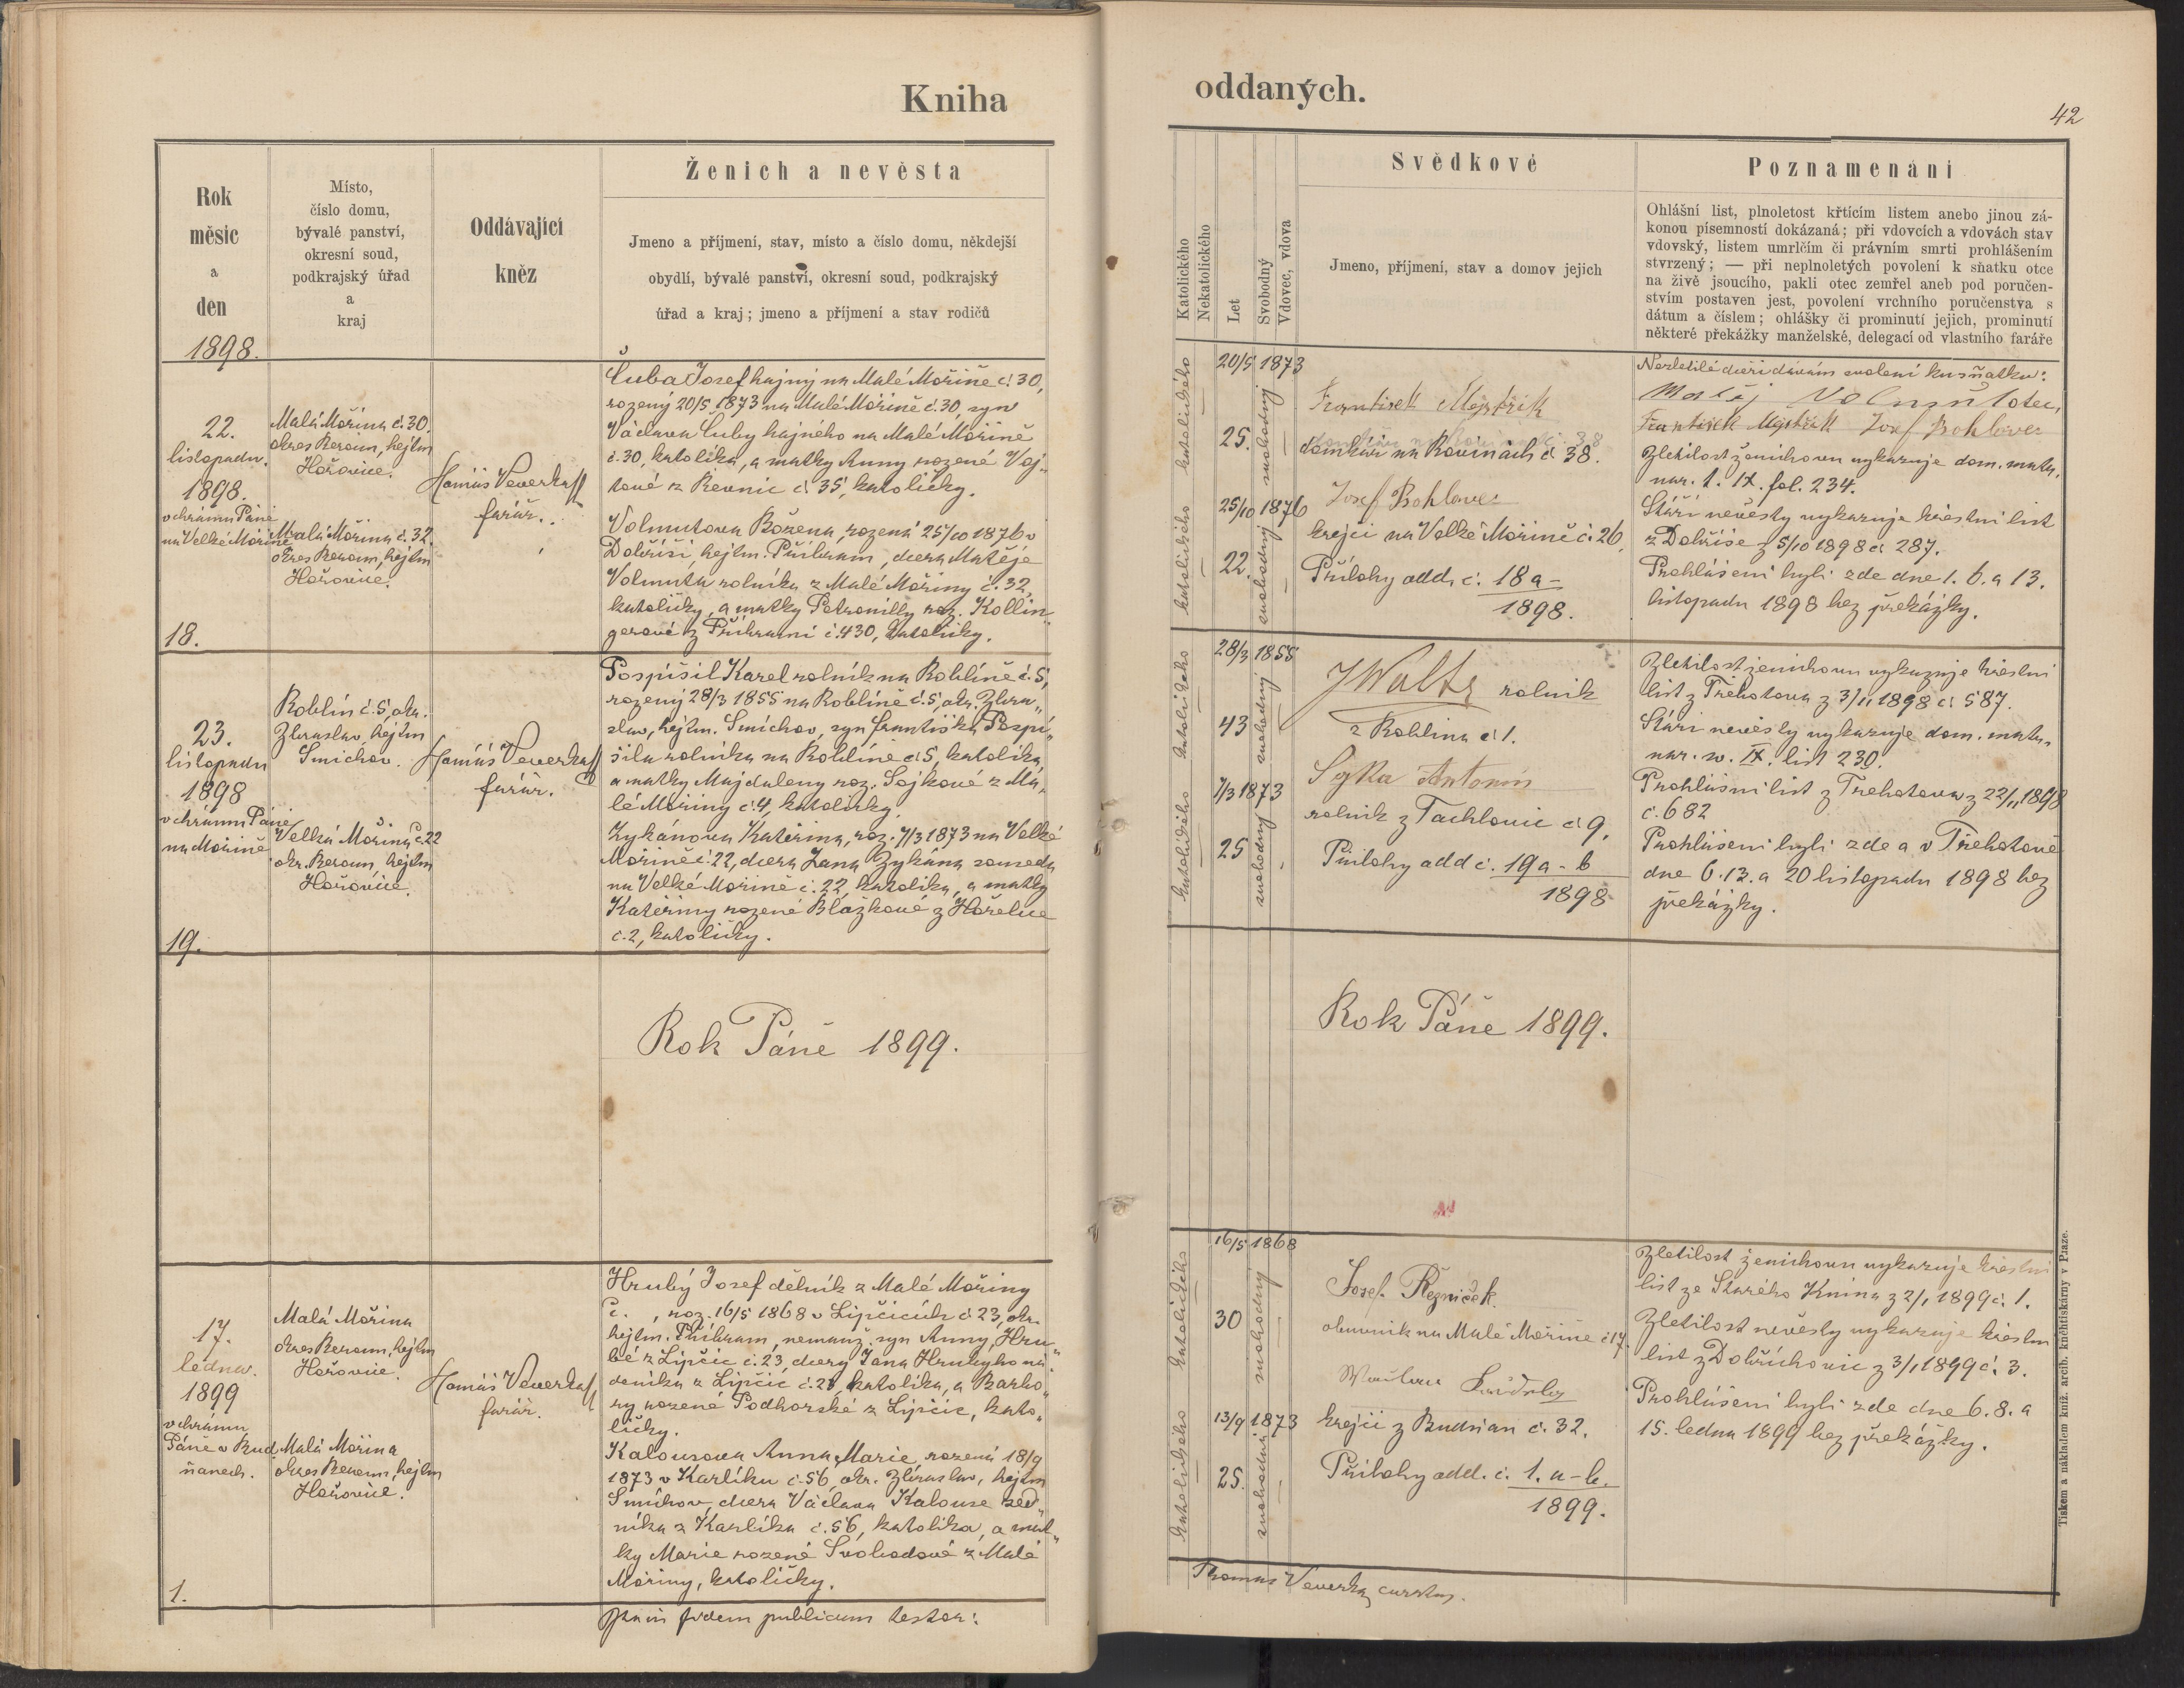 Kniha
Rok
měsíc
a
den
1898.
Místo,
číslo domu,
bývalé panství,
okresní soud,
podkrajský úřad
a
kraj
Oddávající
kněz
Ženich a nevěsta
Jmeno a příjmení, stav, místo a číslo domu, někdejší
obydlí, bývalé panství, okresní soud, podkrajský
úřad a kraj; jmeno a příjmení a stav rodičů
22.
listopadu.
1898.
v chrámu Páně
na Velké Mořině
18.
Malá Mořina č. 30.
okres Beroun, hejtm
Hořovice.
Malá Mořina č. 32.
okres Beroun, hejtm
Hořovice.
Veverka
farář.
Čuba Josef hajný na Malé Mořině č. 30,
rozený 20/5 1873 na Malé Mořině č. 30, syn
Václava Čuby hajného na Malé Mořině
č. 30, katolíka, a matky Anny rozené Voj-
tové z Řevnic č. 35, katoličky.
Volmutova Božena, rozená 25/10 1876 v
Dobříši, hejtm. Příbram, dcera Matěje
Volmuta rolníka z Malé Mořiny č. 32,
katolíčky, a matky Petronilly roz. Kollin-
gerové z Příbrami č. 430, katolíčky.
23.
listopadu
1898
v chrámu Páně
na Mořině
19.
Roblín č. 5, okr.
Zbraslav, hejtm
Smíchov.
Velká Mořina č. 22
okr. Beroun, hejtm
Hořovice.
Veverka
farář.
Pospíšil Karel rolník na Roblíně č. 5,
rozený 28/3 1855 na Roblíně č. 5, okr. Zbra-
slav, hejtm. Smíchov, syn Františka Pospí-
šila rolníka na Roblíně č. 5, katolíka,
a matky Majdaleny roz. Sojkové z Ma-
lé Mořiny č. 4, katoličky.
Zykánova Kateřina, roz. 7/3 1873 na Velké
Mořině č. 22, dcera Jana Zykána souseda
na Velké Mořině č. 22, katolíka, a matky
Kateřiny rozené Blažkové z Hořelice
č. 2, katoličky.
Rok Páně 1899.
17.
ledna.
1899
v chrámu
Páně v Bud-
ňanech.
1.
Malá Mořina
okres Beroun, hejtm
Hořovice.
Malá Mořina
okres Beroun, hejtm
Hořovice.
Veverka
farář.
Hrubý Josef dělník z Malé Mořiny
č. , roz. 16/5 1868 v Lipčicích č. 23, okr.
hejtm. Příbram, nemanž. syn Anny Hru-
bé z Lipčic č. 23, dcery Jana Hrubýho ná-
deníka z Lipčic č. 23, katolíka, a Barbo-
ry rozené Podhorské z Lipčic, kato-
ličky.
Kalousova Anna Marie, rozená 13/9
1873 v Karlíku č. 56, okr. Zbraslav, hejtm
Smíchov, dcera Václava Kalouse zed-
níka z Karlíka č. 56, katolíka, a mat-
ky Marie rozené Svobodové z Malé
Mořiny, katoličky.
fidem publicam testor:
oddaných.
42
Katolického
Nekatolického
Let
Svobodný
Vdovec, vdova
Svědkové
Jmeno, příjmení, stav a domov jejich
Poznamenání
Ohlášní list, plnoletost křtícím listem anebo jinou zá-
konou písemností dokázaná; při vdovcích a vdovách stav
vdovský, listem umrlčím či právním smrti prohlášením
stvrzený; — při neplnoletých povolení k sňatku otce
na živě jsoucího, pakli otec zemřel aneb pod poručen-
stvím postaven jest, povolení vrchního poručenstva s
dátum a číslem; ohlášky či prominutí jejich, prominutí
některé překážky manželské, delegací od vlastního faráře
katolického
20/5 1873
25.
svobodný
katolického
25/10 1876
22.
svobodný
František Mejstřík
domkář na Rovinách č. 38.
Josef Bohlavec
krejčí na Velké Mořině č. 26.
Přílohy add. č. 18 a –
1898.
Nezletilé dceři dávám svolení ku sňatku:
Matěj Volmut otec,
František Mejstřík Josef Bohlavec
Zletilost ženichovu vykazuje dom. matr.
nar. 1. IX. fol. 234.
Stáří nevěsty vykazuje křestní list
z Dobříše z 5/10 1898 č. 287.
Prohlášeni byli zde dne 1. 6. a 13.
listopadu 1898 bez překážky.
katolického
28/3 1855
43
svobodný
katolického
7/3 1873
25
svobodný
J Waltr rolník
z Roblína č. 1.
Antonín
rolník z Tachlovic č. 9.
Přílohy add č. 19 a – b
1898
Zletilost ženichovu vykazuje křestní
list z Třebotova z 3/11 1898 č. 587.
Stáří nevěsty vykazuje dom. matr.
nar. sv. IX. list 230.
Prohlášní list z Třebotova z 22/11 1898
č. 682
Prohlášeni byli zde a v Třebotově
dne 6. 13. a 20 listopadu 1898 bez
překážky.
Rok Páně 1899.
katolického
16/5 1868
30
svobodný
katolického
13/9 1873
25.
svobodná
Josef Řezníček
obuvník na Malé Mořině č. 17.
Václav
krejčí z Budňan č. 32.
Přílohy add. č. 1. a – b.
1899.
Zletilost ženichovu vykazuje křestní
list ze Starého Knína z 2/1 1899 č. 1.
Zletilost nevěsty vykazuje křestní
list z Dobřichovic z 3/1 1899 č. 3.
Prohlášeni byli zde dne 6. 8. a
15. ledna 1899 bez překážky.
Thomas Veverka curatus.
Tiskem a nákladem kníž. arcib. knihtiskárny v Praze.